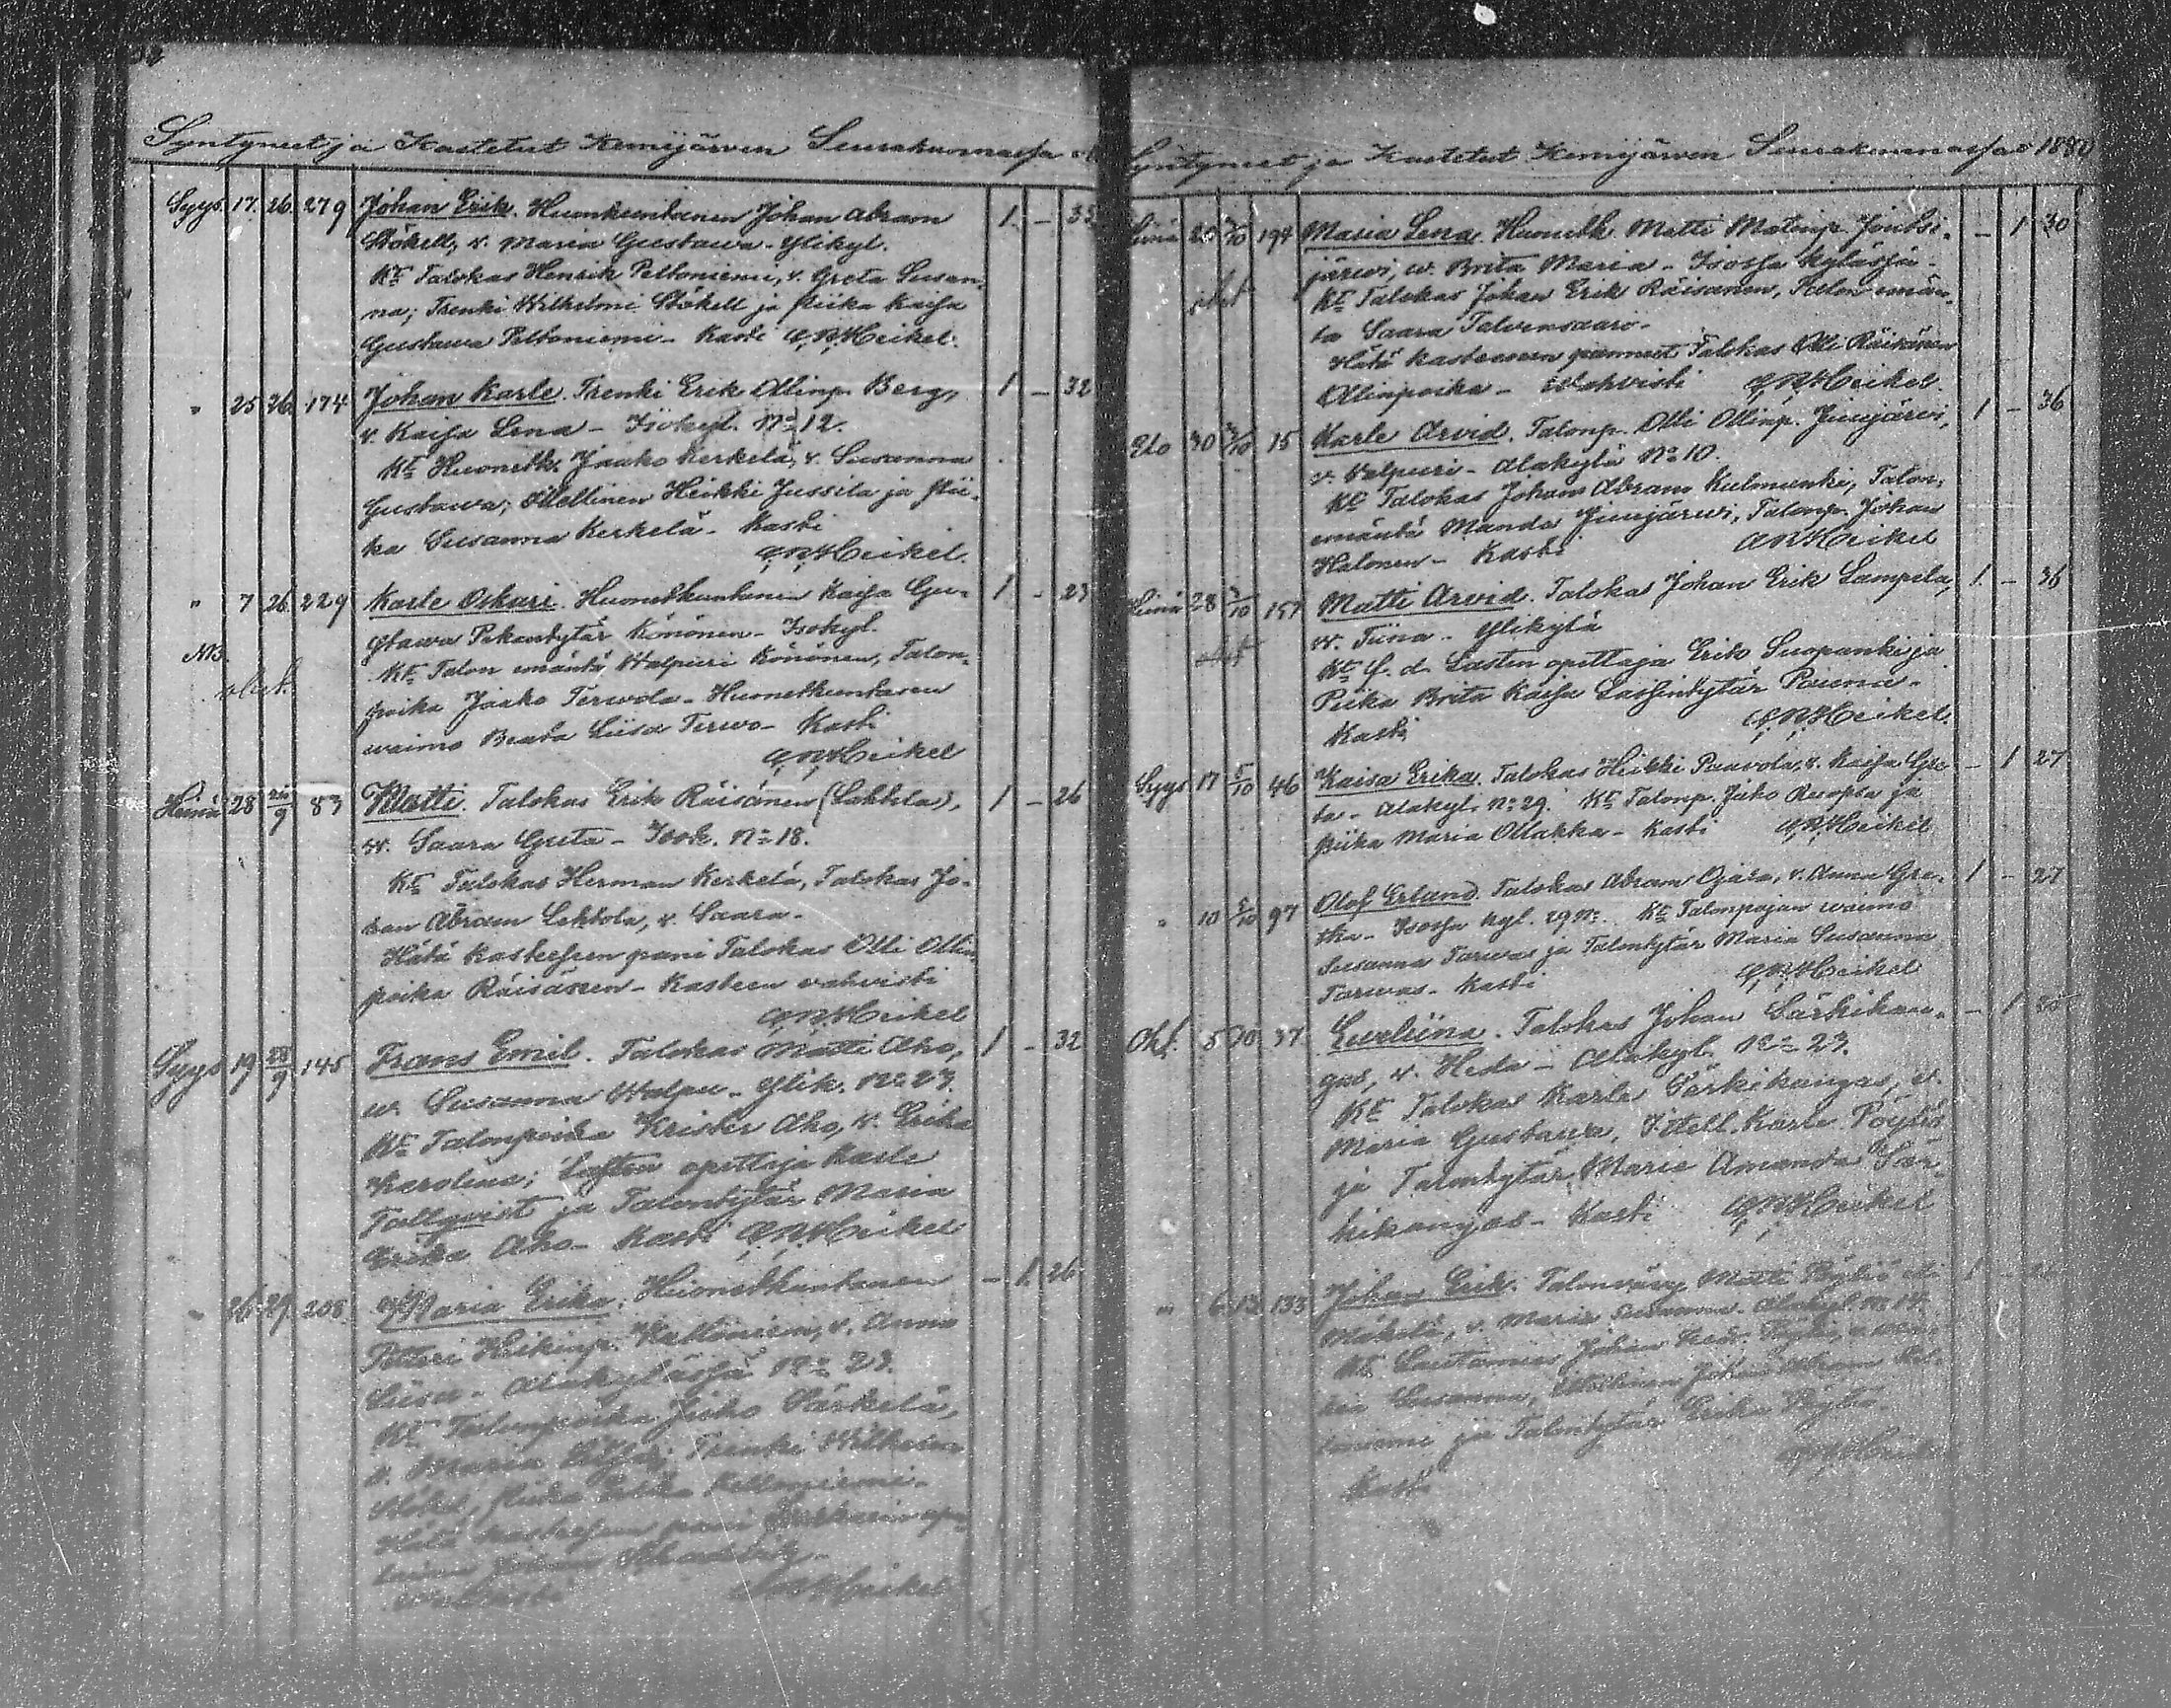 Syntyneet ja Kastetut Kemijärven Seurakunnassa
Syys. 17. 26. 279 Johan Erik. Huonkuntanen Johan Abram 1 – 33
Stökell, v. Maria Gustawa – Ylikyl.
Kt Talokas Henrik Peltoniemi, v. Greta Susan-
na; Trenki Wilhelmi Stökell ja piika Kaisa
Gustawa Peltoniemi – Kasti A.N. Heikel.
" 25 26 174 Johan Karle. Trenki Erik Ollinp. Berg, 1 – 32
v. Kaisa Lena – Isokyl. No 12.
Kt Huonetk. Jaako Kerkelä, v. Susanna
Gustawa; Itellinen Heikki Jussila ja pii-
ka Susanna Kerkelä – Kasti
A.N. Heikel.
" 7 26 229 Karle Oskari. Huonetkuntanen Kaisa Gu- 1 – 23
NB. stawa Pekantytär Könönen – Isokyl.
Kt Talon emäntä Walpuri Könönen, Talon-
poika Jaako Terwola – Huonetkuntasen
waimo Beata Liisa Terwo – Kasti
A.N. Heikel
Heinä 28 26/9 83 Matti. Talokas Erik Räisänen (Lehtola), 1 – 26
w. Saara Greta – Isok. No 18.
Kt Talokas Herman Kerkelä, Talokas Jo-
han Abram Lehtola, v. Saara –
Hätä kasteesen pani Talokas Olli Ollin
poika Räisänen – Kasteen vahvisti
A.N. Heikel
Syys 19 28/9 145 Frans Emil. Talokas Matti Aho, 1 – 32
w. Susanna Walpu – Ylik. No 23.
Kt Talonpoika Krister Aho, v. Erika
Karolina; Lasten opettaja Karle
Tallqvist ja Talontytär Maria
Erika Aho – Kasti A.N. Heikel
" 26. 29. 208. Maria Erika. Huonetkuntanen – 1 26
Petteri Heikinp. Kelloniemi, v. Anna
Liisa – Alakylässä No 23.
Kt Talonpoika Juho Särkelä,
v. Maria Trenki Wilhelm
Stökel, piika Kelloniemi –
Hätä kasteesen pani
Johan
A.N. Heikel
Syntyneet ja Kastetut Kemijärven Seurakunnassa 1880
Heinä 20 3/10 194 Maria Lena. Huonetk. Matti Matinp. Jontsi- – 1 30
järwi, w. Brita Maria – Isossa kylässä –
Kt Talokas Johan Erik Räisänen, Talon emän-
tä Saara Talvensaari –
Hätä kasteeseen pannut Talokas Olli Räisänen
Ollinpoika – Wahvisti A.N. Heikel.
Elo 30 3/10 15 Karle Arvid. Talonp. Olli Ollinp. Juujärwi, 1 – 36
v. Valpuri – Alakylä No 10.
Kt Talokas Johan Abram Kulmunki, Talon-
emäntä Manda Juujärwi, Talonp. Johan
Halonen – Kasti A.N. Heikel
Heinä 28 3/10 157 Matti Arvid. Talokas Johan Erik Lampela, 1 – 36
w. Tiina – Ylikylä
Kt f. d. Lasten opettaja Erik Suopanki ja
Piika Brita Kaisa Lassintytär Pauna –
Kasti A.N. Heikel.
Syys 17 5/10 46 Kaisa Erika. Talokas Heikki Paavola, v. Kaisa Gre- – 1 27
ta – Alakyl. No 29. Kt Talonp. Juho Ruopsa ja
piika Maria Ollakka – Kasti A.N. Heikel
" 10 5/10 97 Olof Erland. Talokas Abram Ojala, v. Anna Gre- 1 – 27
tha – Isossa kyl. 29 No. Kt Talonpojan waimo
Susanna Tarwas ja Talontytär Maria Susanna
Tarwas – Kasti A.N. Heikel
Okt. 5 10 37 Eveliina. Talokas Johan Särkikan- – 1 35
gas, v. Heda – Alakyl. No 23.
Kt Talokas Karle Särkikangas, v.
Maria Gustawa, Itell. Karle Pöyliö
ja Talontytär Maria Amanda Sär-
kikangas – Kasti A.N. Heikel
" 6 13 133 Johan Erik. Talonvävy Matti Pöyliö 1 –
Mäkelä, v. Maria Susanna – Alakyl. No 14.
Kt Lautamies Johan Pöyliö,
Susanna, Itellinen Johan Abram Kel-
loniemi ja Talontytär Erika Pöyliö –
Kasti A.N. Heikel